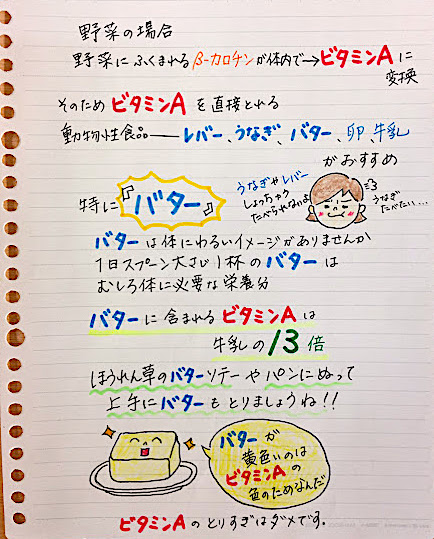 野菜の場合
野菜にふくまれるβ-カロチンが体内で→ビタミンAに
変換
そのためビタミンAを直接とれる
動物性食品――レバー、うなぎ、バター、卵、牛乳
がおすすめ
特に『バター』
うなぎやレバー
しょっちゅう
たべられないよ
うなぎ
たべたい…
バターは体にわるいイメージがありませんか
1日スプーン大さじ1杯のバターは
むしろ体に必要な栄養分
バターに含まれるビタミンAは
牛乳の13倍
ほうれん草のバターソテーやパンにぬって
上手にバターもとりましょうね!!
バターが
黄色いのは
ビタミンAの
色のためなんだ
ビタミンAのとりすぎはダメです。